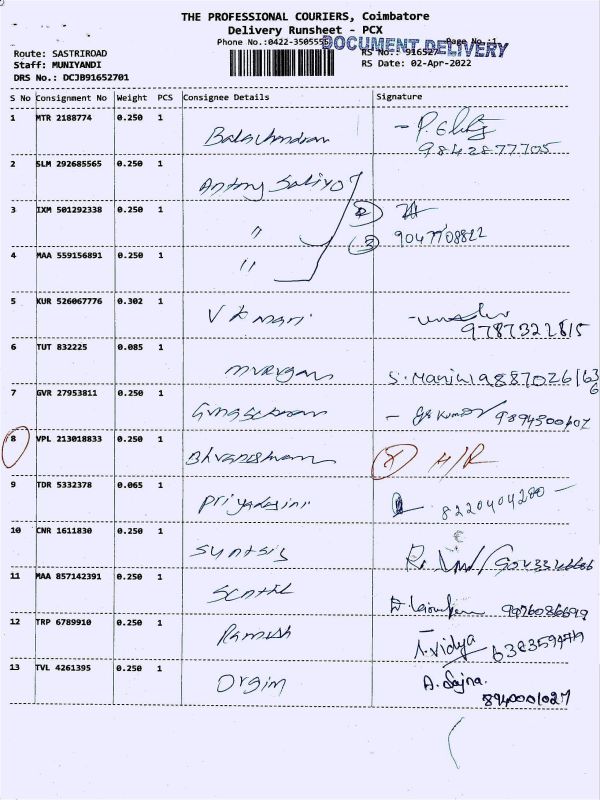 THE PROFESSIONAL COURIERS, Coimbatore
Delivery Runsheet - PCX
Phone No.:0422-3505555 Page No.:1
DOCUMENT DELIVERY
Route: SASTRIROAD RS No.: 916527
Staff: MUNIYANDI RS Date: 02-Apr-2022
DRS No.: DCJB91652701
S No Consignment No Weight PCS Consignee Details Signature
1 MTR 2188774 0.250 1 Balachndran
9842877705
2 SLM 292685565 0.250 1 Antony
3 IXM 501292338 0.250 1 〃 3 9047708822
4 MAA 559156891 0.250 1 〃
5 KUR 526067776 0.302 1 V K mari
9787322815
6 TUT 832225 0.085 1 murugan
7 GVR 27953811 0.250 1
8 VPL 213018833 0.250 1 H/R
9 TDR 5332378 0.065 1 Priyadasini 8220404200
10 CNR 1611830 0.250 1
11 MAA 857142391 0.250 1 Senthil
12 TRP 6789910 0.250 1 Ramesh T. Vidya
13 TVL 4261395 0.250 1 Orgim A. Sajna.
8940001027